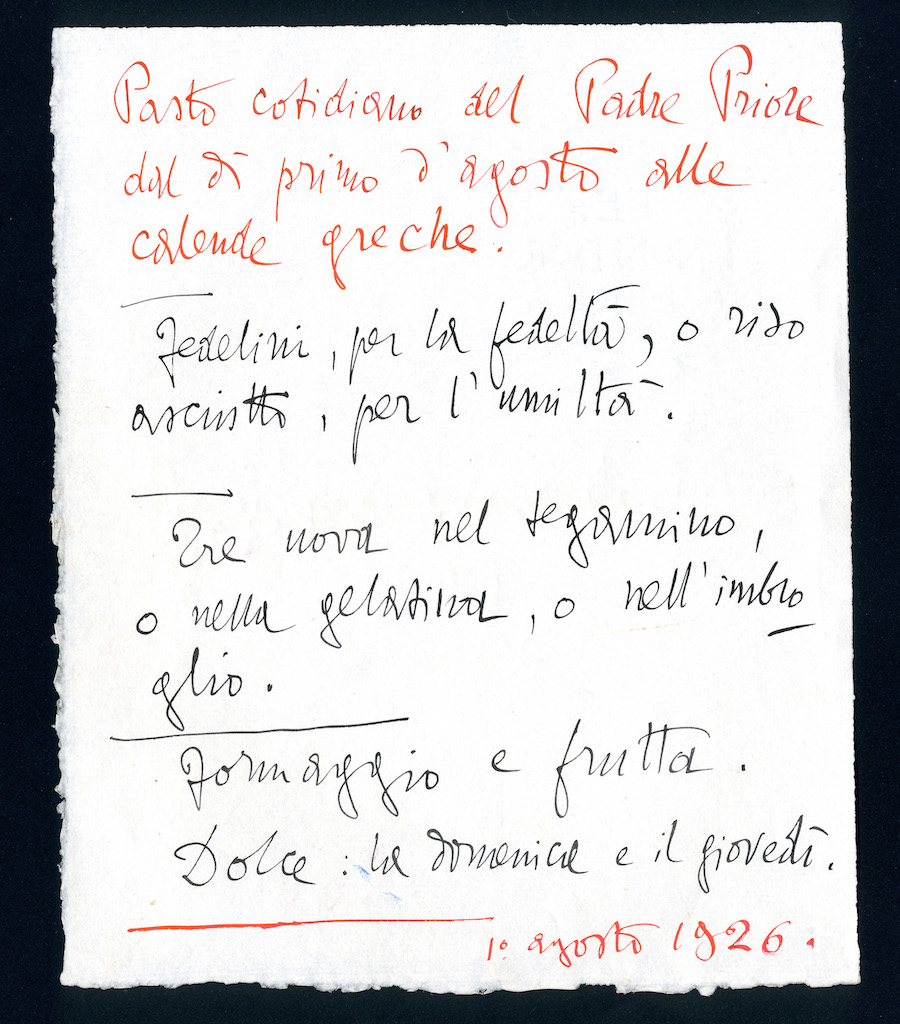 Pasto cotidiano del Padre Priore
dal dì primo d'agosto alle
calende greche.
Fedelini, per la fedeltà, o riso
asciutto, per l'umiltà.
Tre uova nel tegamino,
o nella gelatina, o nell'imbro
glio.
Formaggio e frutta.
Dolce: la domenica e il giovedì.
1º agosto 1926.